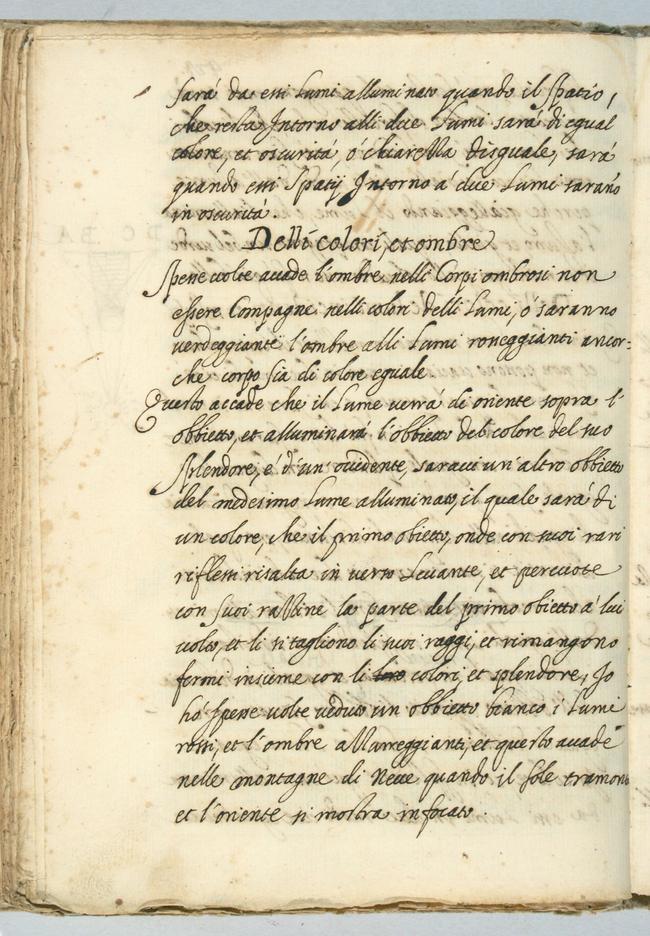 sarà da essi lumi alluminato quando il spatio,
che resta Intorno alli due Lumi sarà di equal
colore, et oscurità, ò chiarezza disguale, sarà
quando essi Spatij Intorno à due Lumi sarano
in oscurità.
Delli colori, et ombre
Spesse volte accade l'ombre nelli Corpi ombrosi non
essere Compagne nelli colori delli Lumi, ò saranno
verdeggiante l'ombre alli Lumi rosseggianti ancor:
che corpo sia di colore eguale
Questo accade che il Lume verrà di oriente sopra l'
obbietto, et alluminarà l'obbietto del colore del suo
Splendore, e d'un' occidente, saracci un' altro obbietto
del medesimo Lume alluminato, il quale sarà di
un colore, che il primo obietto, onde con suoi rari
riflessi risalta in verso Levante, et percuote
con suoi razzine la parte del primo obietto à lui
volto, et li si tagliono li suoi raggi, et rimangono
fermi insieme con li loro colori, et splendore, Io
hò spesse volte veduto un obbietto bianco i Lumi
rossi, et l'ombre azzurreggianti, et questo accade
nelle montagne di Neve quando il sole tramona
et l'oriente si mostra infocato.